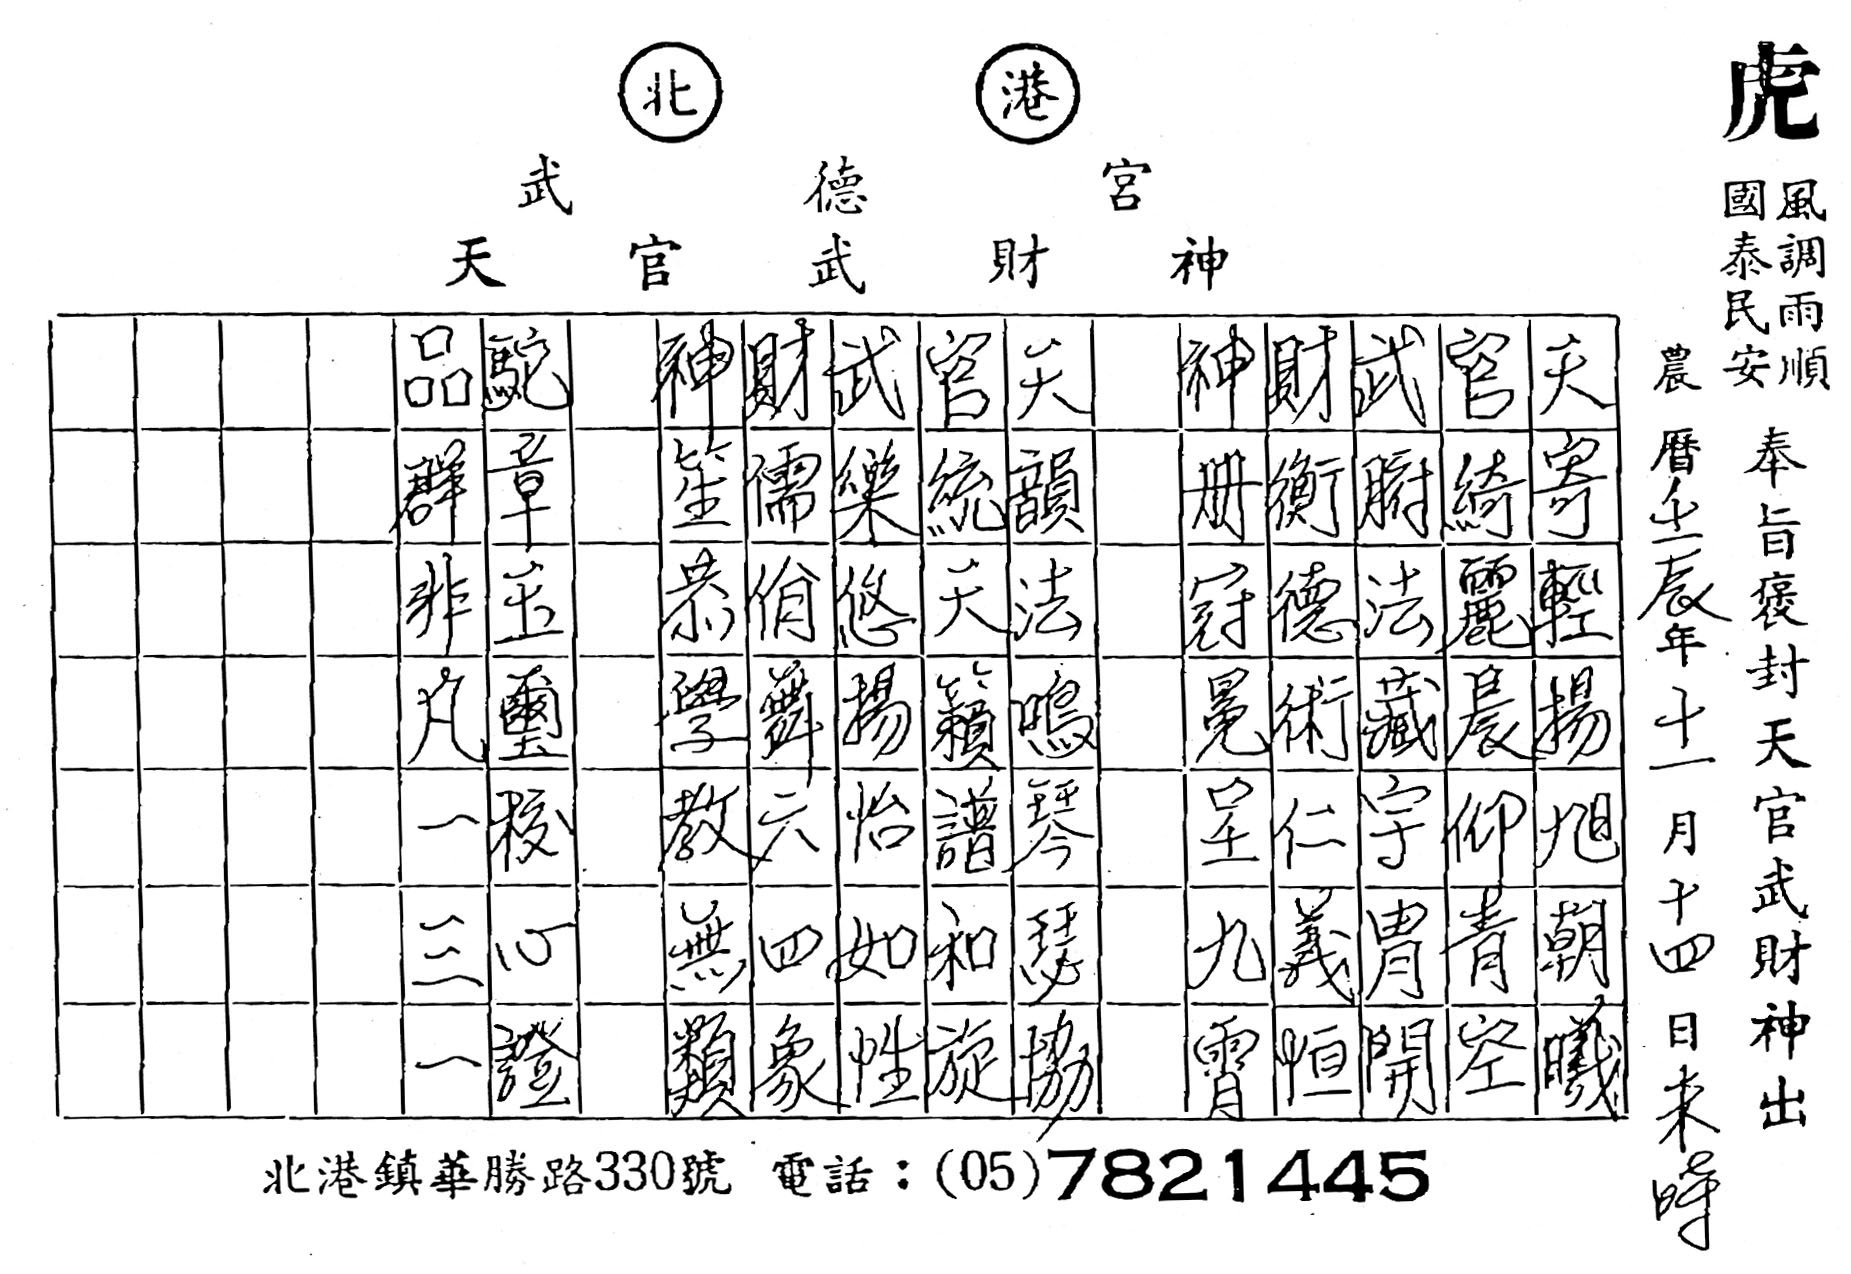 虎
風調雨順
國泰民安
北 港
武德宮
天官武財神
奉旨褒封天官武財神出
農曆壬辰年十一月十四日未時
天寄輕揚旭朝曦
官綺麗晨仰青空
武法藏宇胄開
財衡德術仁義恒
神冊冠冕呈九霄
天韻法鳴琴瑟協
官統天籟譜和旋
武樂悠揚怡如性
財儒佾舞六四象
神笙恭學教無類
駝章玉璽校心證
品群非凡一三一
北港鎮華勝路330號 電話：(05)7821445